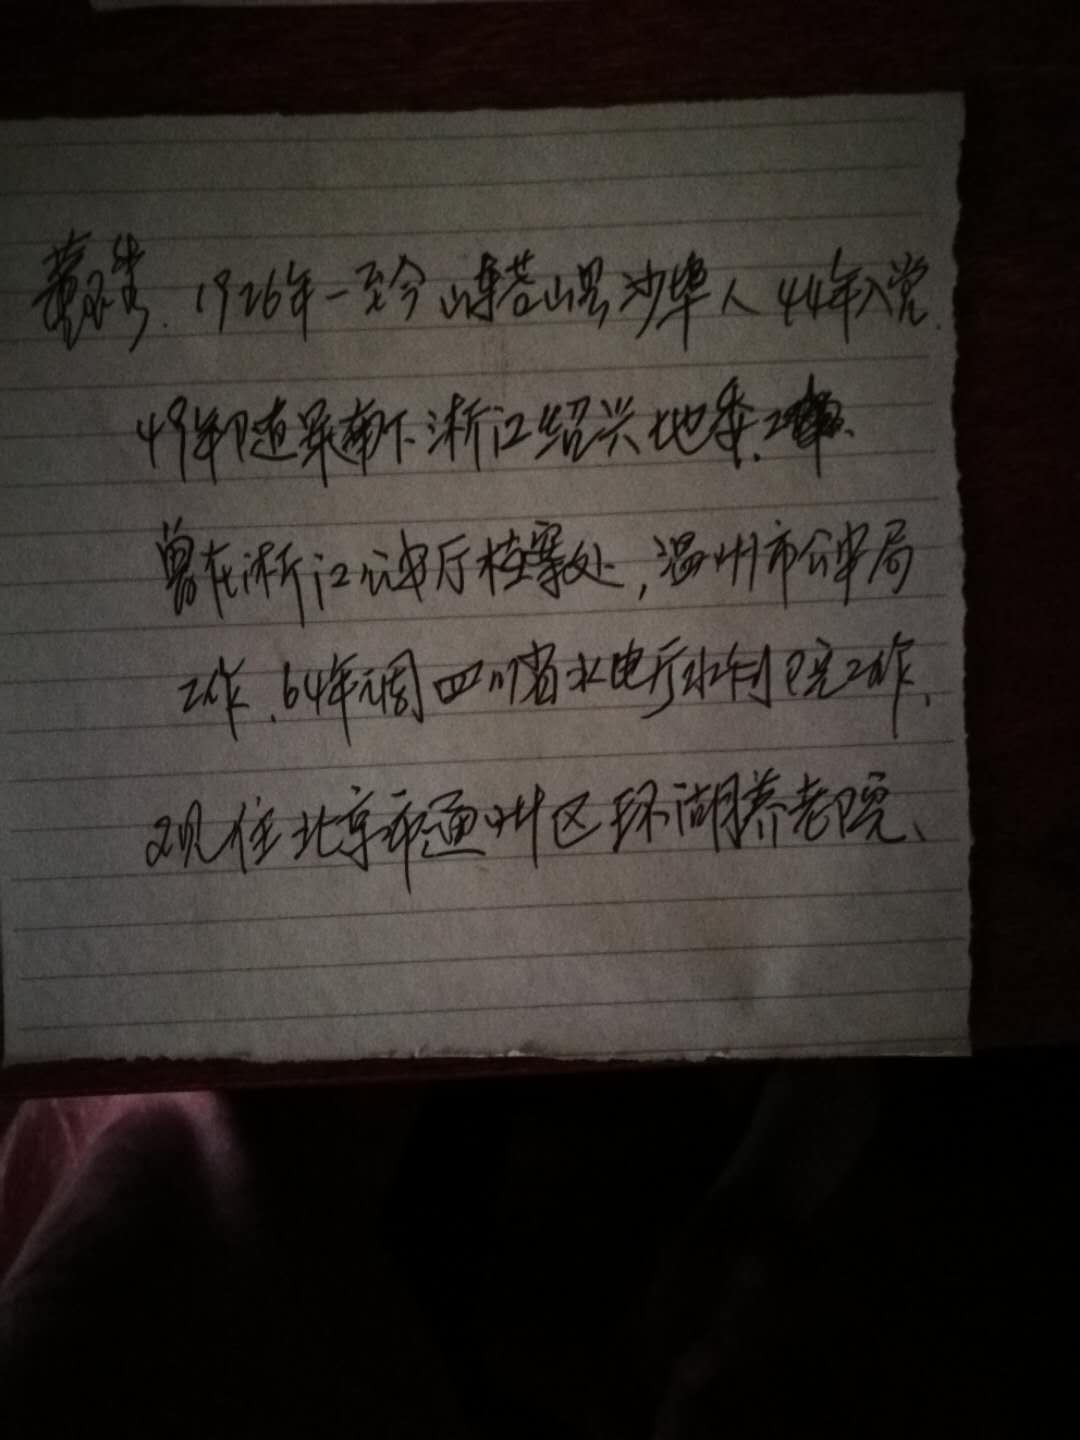 1926年-至今 山东莒山县沙埠人 44年入党.
49年随军南下浙江绍兴地委.
曾在浙江公安厅档案处,温州市公安局
工作.64年调四川省水电厅水利院工作.
现住北京市通州区环湖养老院、